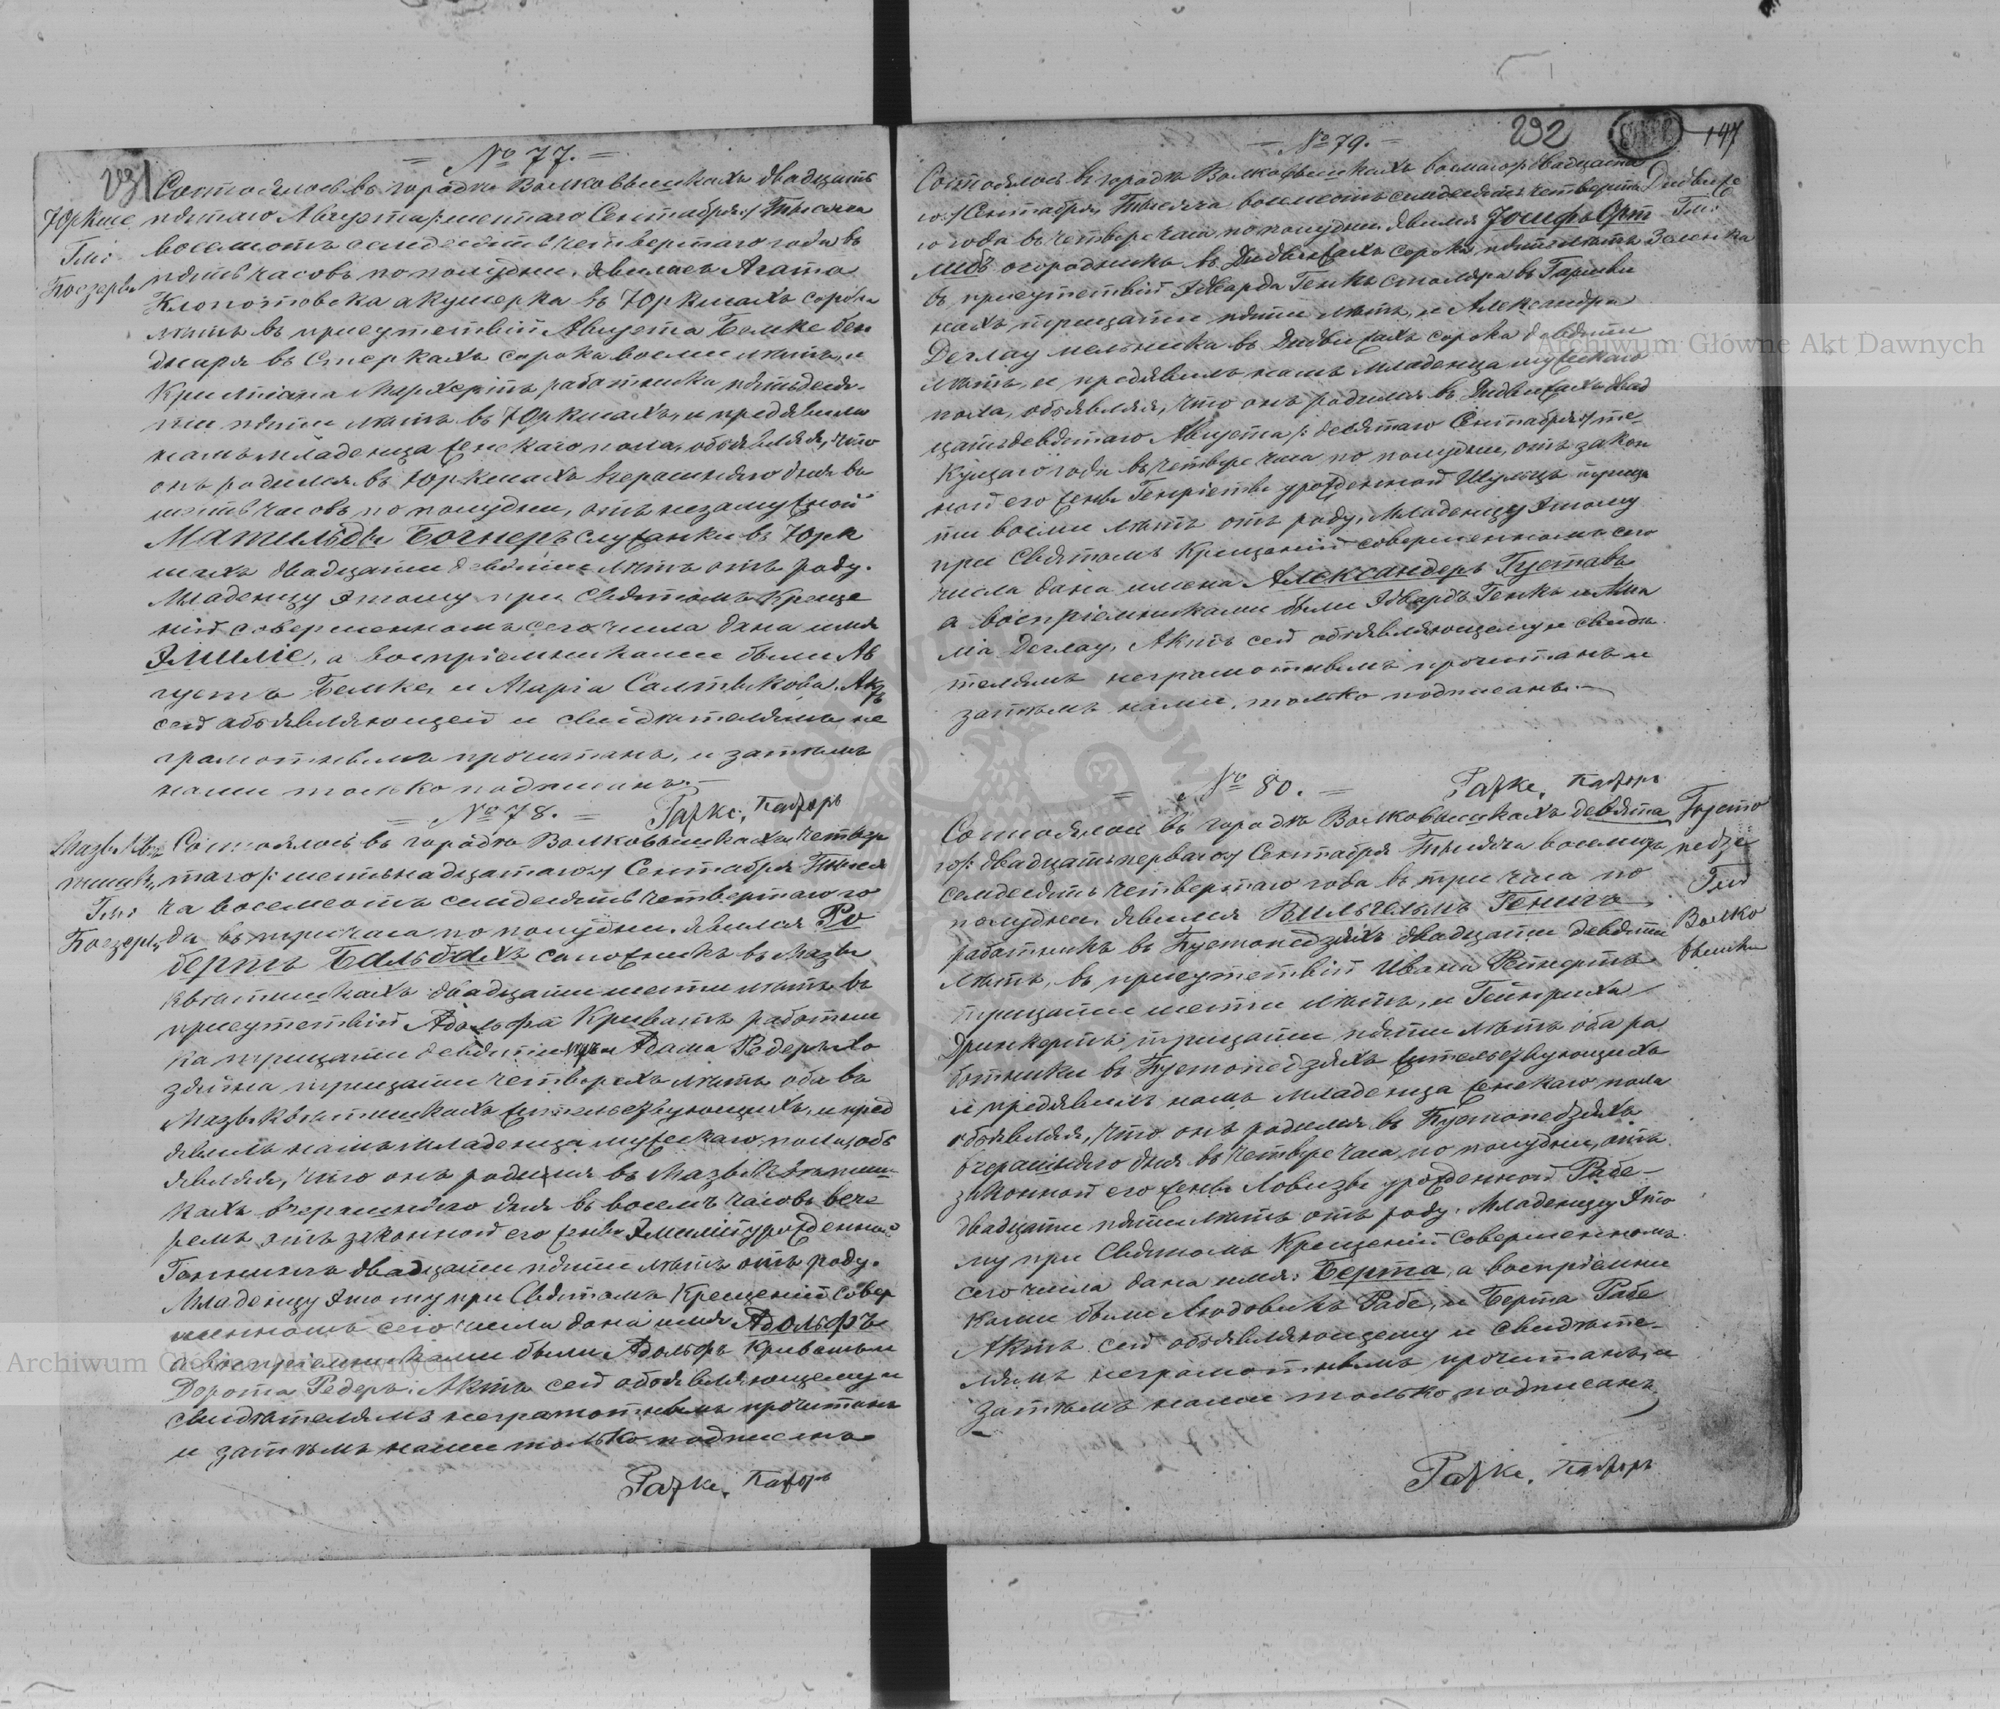 231
= № 77. =
Юркше
Гми:
Посзерн.
Состоялось въ городѣ Волковышкахъ двадцать
пятаго Августа /: шестаго Сентября :/ Тысяча
восемьсотъ семдесятъ четвертаго года въ
пять часовъ по полудни, явилась Агата
Клопотовска акушерка въ Юркшахъ сорока
лѣтъ въ присутствіи Августа Бемке бен
дкаря въ Стеркахъ сорока восьми лѣтъ, и
Кристіана работника пятьдеся-
ти пяти лѣтъ въ Юркшахъ, и предявила
намъ младенца женскаго пола, объявляя, что
онъ родился въ Юркшахъ вчерашняго дня въ
шесть часовъ по полудни, отъ незамужной
Матильды Богнеръ служанки въ Юрк
шахъ двадцати девяти лѣтъ отъ роду.
Младенцу этому при Святомъ Креще
ніи совершенномъ сего числа дана имя
Эмиліе, а воспріемниками были Ав
густъ Бемке, и Марія Салтыкова. Актъ
сей объявляющей и свидѣтелямъ не
грамотнымъ прочитанъ, и затѣмъ
нами только подписанъ.
= № 78. =
Пасторъ
Гмі:
Состоялось въ городѣ Волковышкахъ четвер
таго /: шестьнадцатаго :/ Сентября Тыся
ча восемсотъ семдесятъ четвертаго го
да въ три часа по полудни, явился Ро
бертъ Бальбахъ сапожникъ въ Мазы
квятишкахъ двадцати шести лѣтъ въ
присутствіи Адольфа Криватъ работни
ка тридцати девяти и Адама Редеръ хо
зяина тридцати четверехъ лѣтъ оба въ
Мазыквятишкахъ жительствующихъ, и пред
явилъ намъ младенца мужескаго пола, объ
являя, что онъ родился въ Мазыквятиш-
кахъ вчерашняго дня въ восемъ часовъ вече
ремъ отъ законной его жены Эмиліи урожденной
двадцати пяти лѣтъ отъ роду.
Младенцу этому при Святомъ Крещеніи совер
шенномъ сего числа дана имя Адольфъ
а воспріемниками были Адольфъ Криватъ и
Дорота Редеръ: Актъ сей объявляющему и
свидѣтелямъ неграмотнымъ прочитанъ
и затѣмъ нами только подписанъ
Пасторъ
292
147
= № 79. =
Гмі:
Состоялось въ городѣ Волковышкахъ восьмаго /: двадцата
го :/ Сентября Тысяча восемсотъ семдесятъ четверта
го года въ четвере часа по полудни. Явился Іосифъ Орт
либъ огородникъ въ Дидвижахъ сорока пяти лѣтъ
въ присутствіи Эдварда Генкъ столяра въ
нахъ тридцати пяти лѣтъ, и Александра
Деглау мельника въ Дидвижахъ сорока девяти
лѣтъ, и предявилъ намъ младенца мужескаго
пола, объявляя, что онъ родился въ Дидвижахъ двад
цатьдевятаго Августа /: десятаго Сентября :/ те-
кущаго года въ четвере часа по полудни, отъ закон
ной его жены Генріеты урожденной Шульцъ тридца
ти восьми лѣтъ отъ роду. Младенцу этому
при Святомъ Крещеніи совершенномъ сего
числа дана имена Александеръ Густавъ
а воспріемниками были Эдвардъ Генкъ и Ама
лія Деглау. Актъ сей объявляющему и свидѣ
телямъ неграмотнымъ прочитанъ и
затѣмъ нами, только подписанъ.
= № 80. =
Пасторъ
Густо
педзе
Гми
Волко
вышки
Состоялось въ городѣ Волковышкахъ девята
го /: двадцатьперваго :/ Сентября Тысяча восемсотъ
семдесятъ четвертаго года въ три часа по
полудни. Явился Вильгельмъ Генигъ
работникъ въ Густопедзяхъ двадцати девяти
лѣтъ, въ присутствіи Ивана Рейнертъ
тридцати шести лѣтъ, и Гейнриха
Дринкертъ тридцати пяти лѣтъ оба ра
ботники въ Густопедзяхъ жительствующихъ
и предявилъ намъ младенца женскаго пола
объявляя, что онъ родился въ Густопедзяхъ
вчерашняго дня въ четвере часа по полудни, отъ
законной его жены Ловизы урожденной Рабе
двадцати пяти лѣтъ отъ роду. Младенцу это
му при Святомъ Крещеніи совершенномъ
сего числа дана имя: Берта, а воспріемни
ками были Людовикъ Рабе, и Берта Рабе
Актъ сей объявляющему и свидѣте-
лямъ неграмотнымъ прочитанъ, и
затѣмъ нами только подписанъ
Пасторъ
Archiwum Główne Akt Dawnych
Archiwum Główne Akt Dawnych